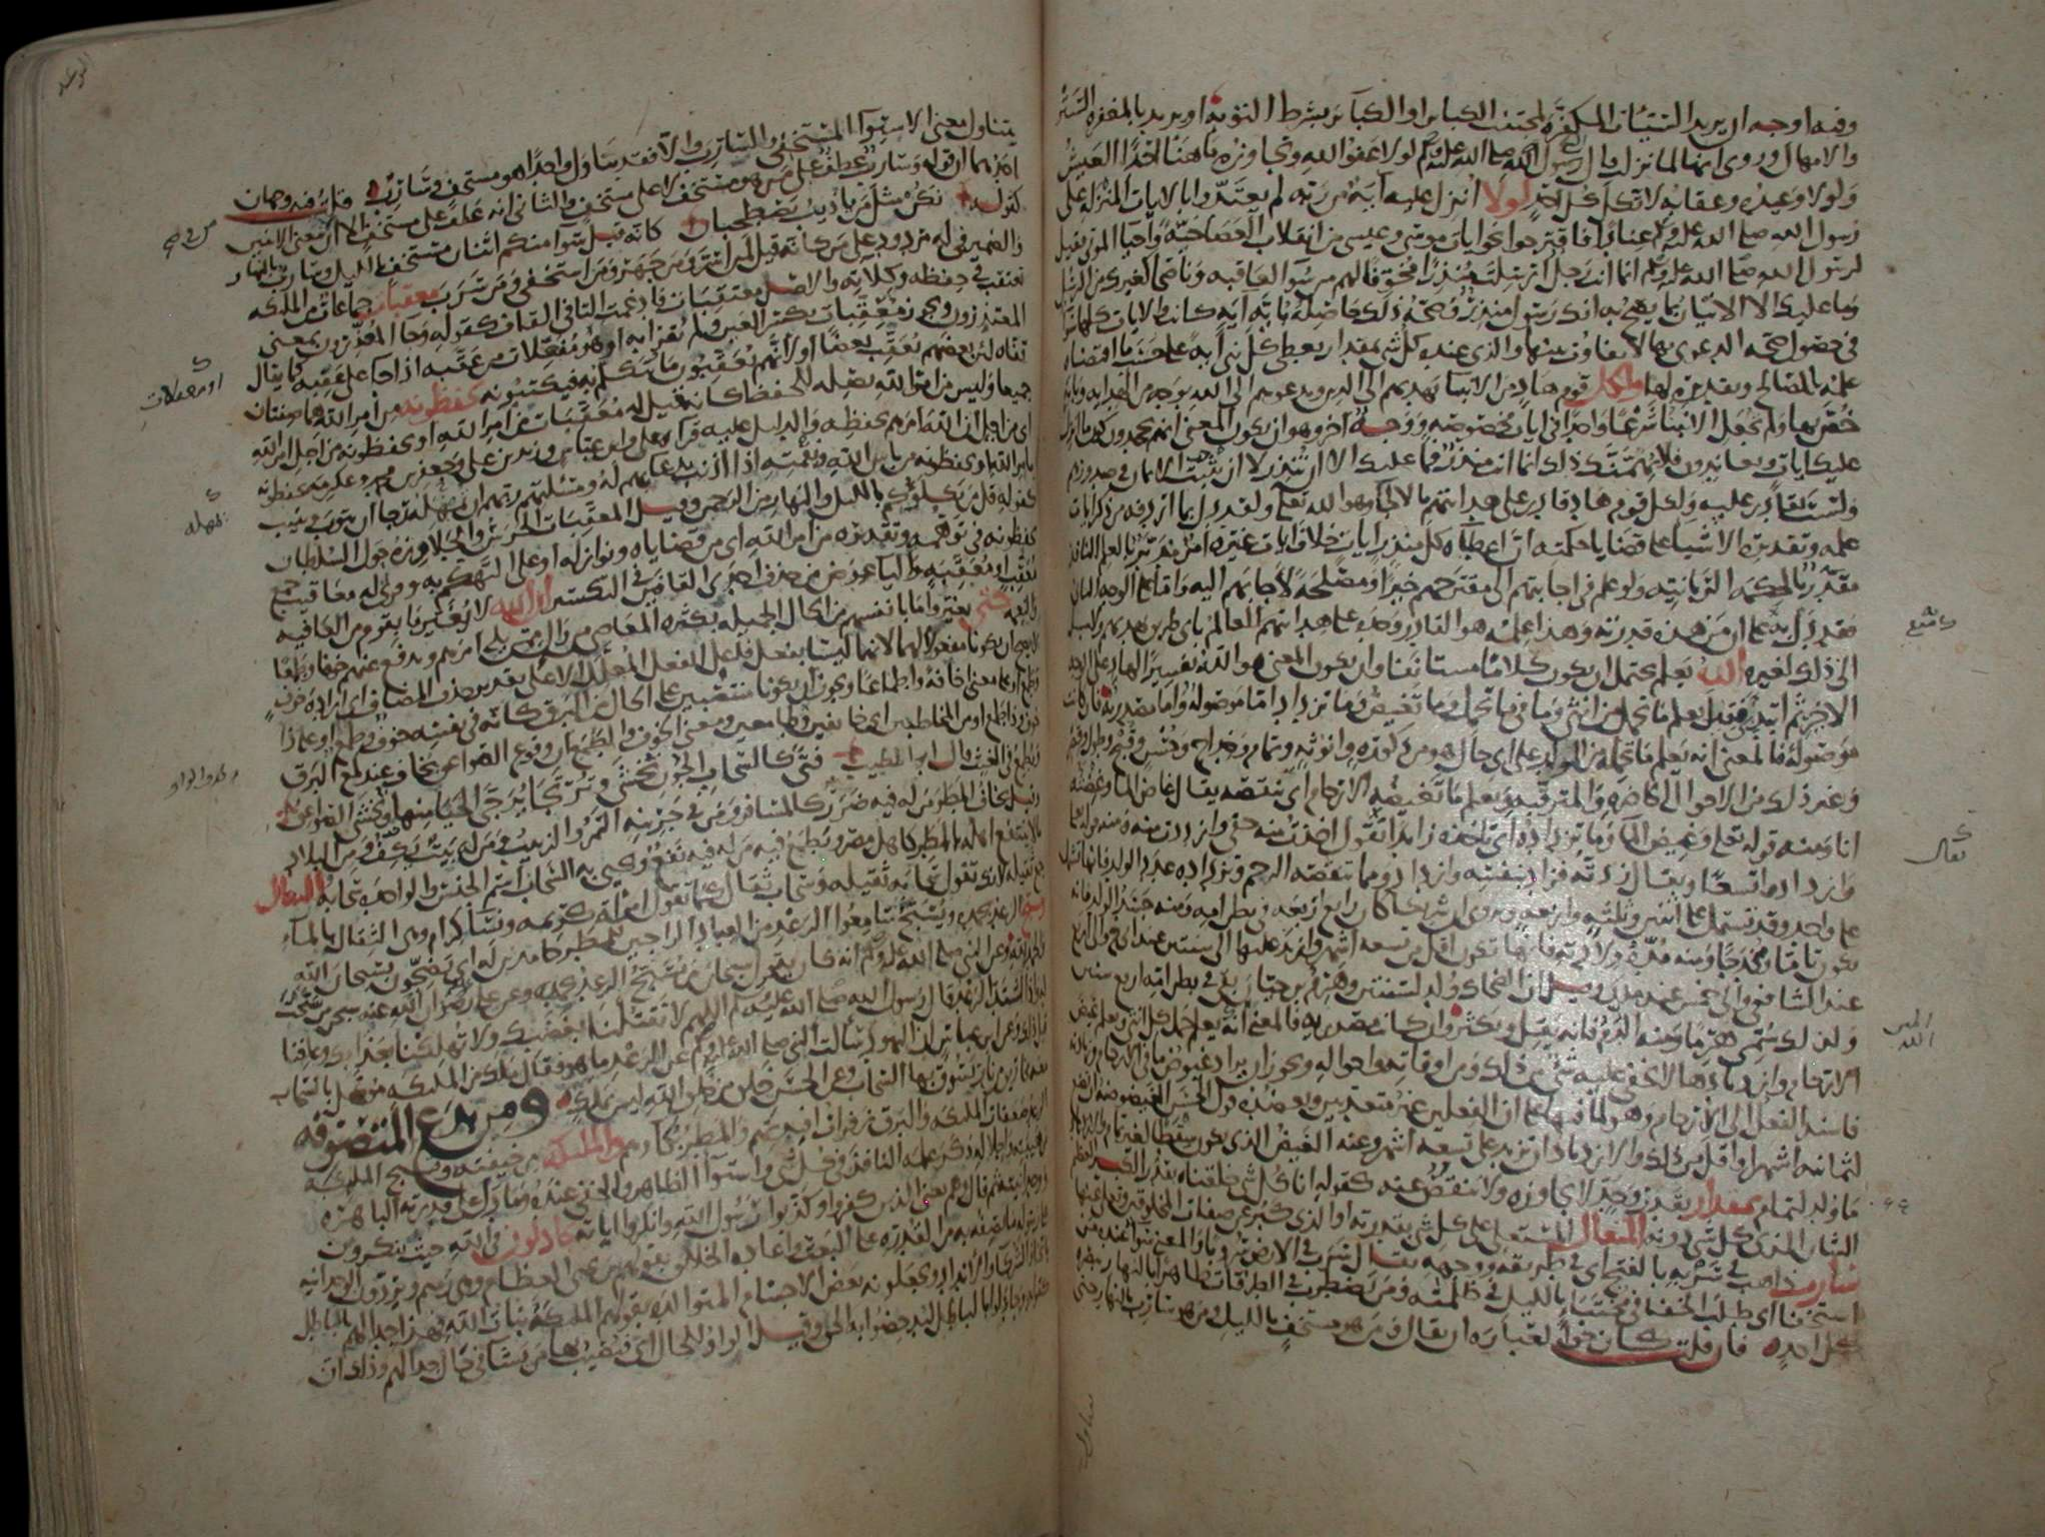 وفيه اوجه ان يريد السيئات المكفرة لمجتنب الكباير او الكباير بشرط التوبة او يريد بالمغفرة الستر
والامهال وروي انها لما نزلت قال رسول الله صلى الله عليه وسلم لولا عفو الله وتجاوزه ما هنا احدا العيش
ولولا وعيده وعقابه لاتكل كل احد لولا انزل عليه آية من ربه لم يعتدوا بالايات المنزلة على
رسول الله صلى الله عليه وسلم عنادا فاقترحوا نحو ايات موسى وعيسى من انقلاب العصا حية واحيا الموتى فقيل
لرسول الله صلى الله عليه وسلم انما انت رجل ارسلت منذرا مخوفا لهم من سوء العاقبة وناصحا كغيرك من الرسل
وما عليك الا الاتيان بما يصح به انك رسول منذر وصحة ذلك حاصلة باية اية كانت والايات كلها سوا
في حصول صحة الدعوى بها لا تفاوت بينها والذي عنده كل شي بمقدار يعطي كل نبي آية على حسب ما اقتضاه
علمه بالمصالح وتقديره لها ولكل قوم هاد من الانبيا يهديهم الى الدين ويدعوهم الى الله بوجه من الهداية وباية
خص بها ولم يجعل الانبيا شرعا واحدا في ايات مخصوصة ووجه آخر وهو ان يكون المعنى انهم يجحدون كون ما انزل
عليك ايات ويعاندون فلا يهمنك ذلك انما انت منذر فما عليك الا ان تنذر لا ان تثبت الايمان في صدورهم
ولست بقادر عليه ولكل قوم هاد قادر على هدايتهم بالالجاء وهو الله تعالى ولقد دل بما اردفه من ذكر ايات
علمه وتقديره الاشيا على قضايا حكمته ان اعطاه كل منذر ايات خلاف ايات غيره امر مدبر بالعلم النافذ
مقدر بالحكمة الربانية ولو علم في اجابتهم الى مقترحهم خيرا ومصلحة لاجابهم اليه واما على الوجه الثاني
فقد دل به على ان من هذه قدرته وهذا علمه هو القادر وحده على هدايتهم العالم باي طريق يهديهم ولا سبيل
الى ذلك لغيره الله يعلم يحتمل ان يكون كلاما مستانفا وان يكون المعنى هو الله تفسيرا لهاد على الوجه
الاخير ثم ابتدئ فقيل يعلم ما تحمل كل انثى وما في ما تحمل وما تغيض وما تزداد اما موصولة واما مصدرية فان كانت
موصولة فالمعنى انه يعلم ما تحمله من الولد على اي حال هو من ذكورة وانوثة وتمام وخداج وحسن وقبح وطول وقصر
وغير ذلك من الاحوال الحاضرة والمترقبة ويعلم ما تغيضه الارحام اي تنقصه يقال غاض الماء وغضته
انا ومنه قوله تعالى وغيض الماء وما تزداده اي تاخذه زايدا تقول اخذت منه حقي وازددت منه ومنه قوله تعالى
وازدادوا تسعا ويقال زدته فزاد بنفسه وازداد ومما تنقصه الرحم وتزداده عدد الولد فانها تشتمل
على واحد وقد تشتمل على اثنين وثلثة واربعة ويروى ان شريكا كان رابع اربعة في بطن امه ومنه جسد الولد فانه
يكون تاما ومخدجا ومنه مدة ولادته فانها تكون اقل من تسعة اشهر وازيد عليها الى سنتين عند ابي حنيفة والى اربع
عند الشافعي والى خمس عند ملك وقيل ان الضحاك ولد لسنتين وهرم بن حيان بقي في بطن امه اربع سنين
ولذلك سمي هرما ومنه الدم فانه يقل ويكثر وان كانت مصدرية فالمعنى انه يعلم حمل كل انثى ويعلم غيض
الارحام وازديادها لا يخفى عليه شي من ذلك ومن اوقاته واحواله ويجوز ان يراد غيوض ما في الارحام وزيادته
فاسند الفعل الى الارحام وهو لما فيها على ان الفعلين غير متعديين ويعضده قول الحسن الغيضوضة ان تضع
لثمانية اشهر او اقل من ذلك والازدياد ان تزيد على تسعة اشهر وعنه الغيض الذي يكون سقطا لغير تمام والازدياد
ما ولد لتمام بمقدار بقدر وحد لا يجاوزه ولا ينقص عنه كقوله انا كل شي خلقناه بقدر الكبير العظيم
الشان الذي كل شي دونه المتعال المستعلي على كل شي بقدرته او الذي كبر عن صفات المخلوقين وتعالى عنها
سارب ذاهب في سربه بالفتح اي في طريقه ووجهه يقال سرب في الارض سروبا والمعنى سواء عنده من
استخفا اي طلب الخفا في مختبا بالليل في ظلمته ومن يضطرب في الطرقات ظاهرا بالنهار يبصره
كل احد فان قلت كان حق العبارة ان يقال ومن هو مستخف بالليل ومن هو سارب بالنهار حتى
يتناول معنى الاستواء المستخفي والسارب والا فقد تناول واحدا هو مستخف وسارب قلت فيه وجهان
احدهما ان قوله وسارب عطف على من هو مستخف لا على مستخف والثاني انه عطف على مستخف الا ان من في معنى الاثنين
كقوله نكن مثل من يا ذيب يصطحبان كانه قيل سواء منكم اثنان مستخف بالليل وسارب بالنهار
والضمير في له مردود على من كانه قيل لمن اسر ومن جهر ومن استخفى ومن سرب معقبات جماعات من الملئكة
تعتقب في حفظه وكلاءته والاصل معتقبات فادغمت التا في القاف كقوله وجاء المعذرون بمعنى
المعتذرون ويجوز معقبات بكسر العين ولم يقرا به او هو مفعلات من عقبه اذا جاء على عقبه كما يقال
قفاه لان بعضهم يعقب بعضا او لانهم يعقبون ما يتكلم به فيكتبونه يحفظونه من امر الله هما صفتان
جميعا وليس من امر الله بصلة للحفظ كانه قيل له معقبات من امر الله او يحفظونه من اجل امر الله
اي من اجل ان الله امرهم بحفظه والدليل عليه قراة علي وابن عباس وزيد بن علي وجعفر بن محمد وعكرمة يحفظونه
بامر الله او يحفظونه من باس الله ونقمته اذا اذنب بدعائهم له ومسئلتهم ربهم ان يمهله رجاء ان يتوب وينيب
كقوله قل من يكلؤكم بالليل والنهار من الرحمن وقيل المعقبات الحرس والجلاوزة حول السلطان
يحفظونه في توهمه وتقديره من امر الله اي من قضاياه ونوازله او على التهكم به وقرئ له معاقيب جمع
معقب او معقبة واليا عوض من حذف احدى القافين في التكسير ان الله لا يغير ما بقوم من العافية
والنعمة حتى يغيروا ما بانفسهم من الحال الجميلة بكثرة المعاصي من وال ممن يلي امرهم ويدفع عنهم خوفا وطمعا
لا يصح ان يكونا مفعولا لهما لانهما ليسا بفعل فاعل الفعل المعلل الا على تقدير حذف المضاف اي ارادة خوف
وطمع او على معنى اخافة واطماعا ويجوز ان يكونا منتصبين على الحال من البرق كانه في نفسه خوف وطمع او على ذا
خوف وذا طمع او من المخاطبين اي خايفين وطامعين ومعنى الخوف والطمع ان وقوع الصواعق يخاف عند لمع البرق
ويطمع في الغيث قال ابو الطيب فتى كالسحاب الجون تخشى وترتجى يرجى الحيا منها وتخشى الصواعق
وقيل يخاف المطر من له فيه ضرر كالمسافر ومن في جرينه التمر والزبيب ومن له بيت يكف ومن البلاد
ما لا ينتفع اهله بالمطر كاهل مصر ويطمع فيه من له فيه نفع ويحيى به السحاب اسم الجنس والواحدة سحابة الثقال
جمع ثقيلة لانك تقول سحابة ثقيلة وسحاب ثقال كما تقول امراة كريمة ونساء كرام وهي الثقال بالماء
ويسبح الرعد بحمده ويسبح سامعوا الرعد من العباد الراجين للمطر حامدين له اي يضجون بسبحان الله
والحمد لله وعن النبي صلى الله عليه وسلم انه كان يقول سبحان من يسبح الرعد بحمده وعن علي رضوان الله عنه سبحان من سبحت
له واذا اشتد الرعد قال رسول الله صلى الله عليه وسلم اللهم لا تقتلنا بغضبك ولا تهلكنا بعذابك وعافنا
قبل ذلك وعن ابن عباس ان اليهود سالت النبي صلى الله عليه وسلم عن الرعد ما هو فقال ملك من الملئكة موكل بالسحاب
معه مخاريق من نار يسوق بها السحاب وعن الحسن خلق من خلق الله ليس بملك ومن بدع المتصوفة
الرعد صعقات الملئكة والبرق زفرات افئدتهم والمطر بكاؤهم والملئكة من خيفته ويسبح الملئكة
من هيبته واجلاله ذكر علمه النافذ في كل شي واستواء الظاهر والخفي عنده وما دل على قدرته الباهرة
ووحدانيته ثم قال وهم يعني الذين كفروا وكذبوا رسول الله وانكروا اياته يجادلون في الله حيث ينكرون
على رسوله ما يصفه به من القدرة على البعث واعادة الخلائق بقولهم من يحيي العظام وهي رميم ويردون الوحدانية
باتخاذ الشركاء والانداد ويجعلونه بعض الاجسام المتوالدة بقولهم الملئكة بنات الله فهذا جدالهم بالباطل
كقوله وجادلوا بالباطل ليدحضوا به الحق وقيل الواو للحال اي فيصيب بها من يشاء في حال جدالهم وذلك ان